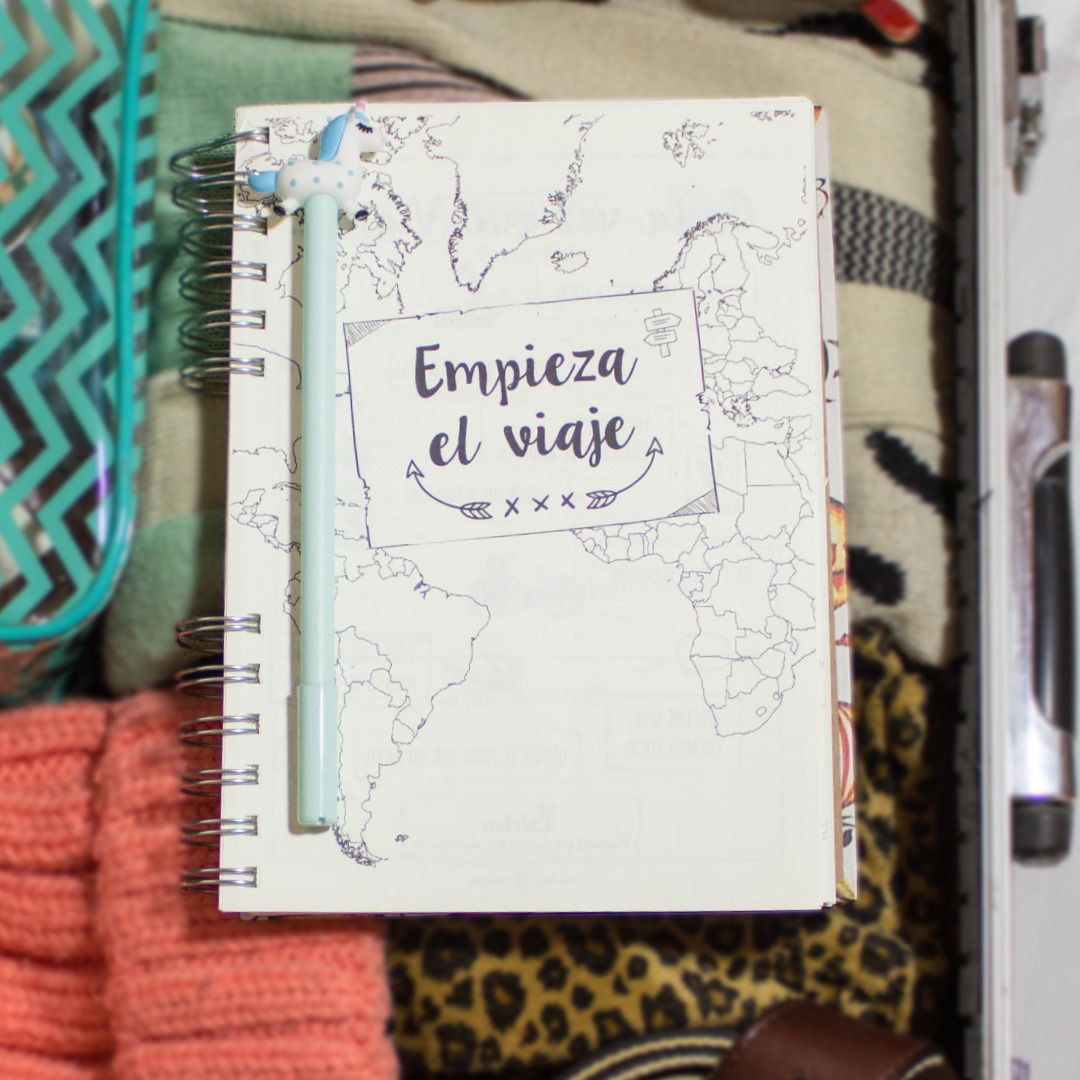 Empieza
el viaje